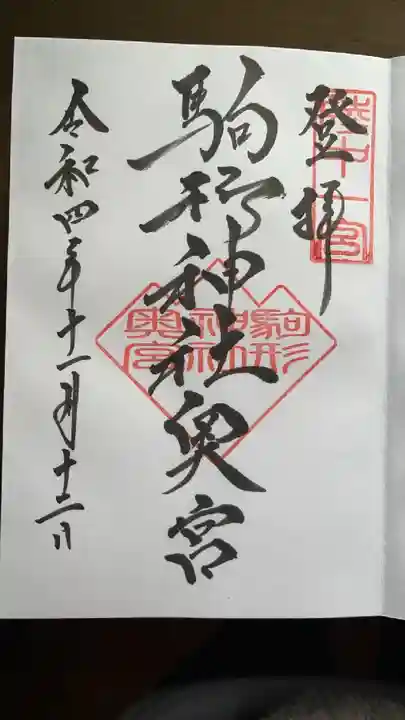 登拝
陸中一宮
駒形神社奥宮
駒形神社奥宮
令和四年十一月十二日